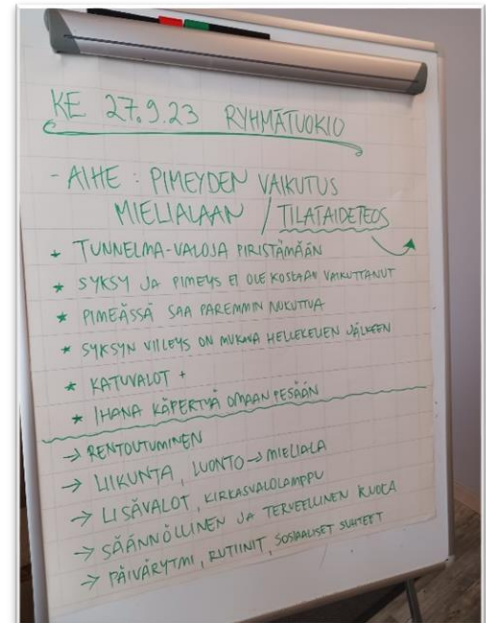 KE 27.9.23 RYHMÄTUOKIO
- AIHE : PIMEYDEN VAIKUTUS
MIELIALAAN / TILATAIDETEOS
+ TUNNELMA-VALOJA PIRISTÄMÄÄN
* SYKSY JA PIMEYS EI OLE KOSKAAN VAIKUTTANUT
* PIMEÄSSÄ SAA PAREMMIN NUKUTTUA
* SYKSYN VIILEYS ON MUKAVA HELLEKELIEN JÄLKEEN
* KATUVALOT +
* IHANA KÄPERTYÄ OMAAN PESÄÄN
→ RENTOUTUMINEN
→ LIIKUNTA, LUONTO → MIELIALA
→ LISÄVALOT, KIRKASVALOLAMPPU
→ SÄÄNNÖLLINEN JA TERVEELLINEN RUOKA
→ PÄIVÄRYTMI, RUTIINIT, SOSIAALISET SUHTEET